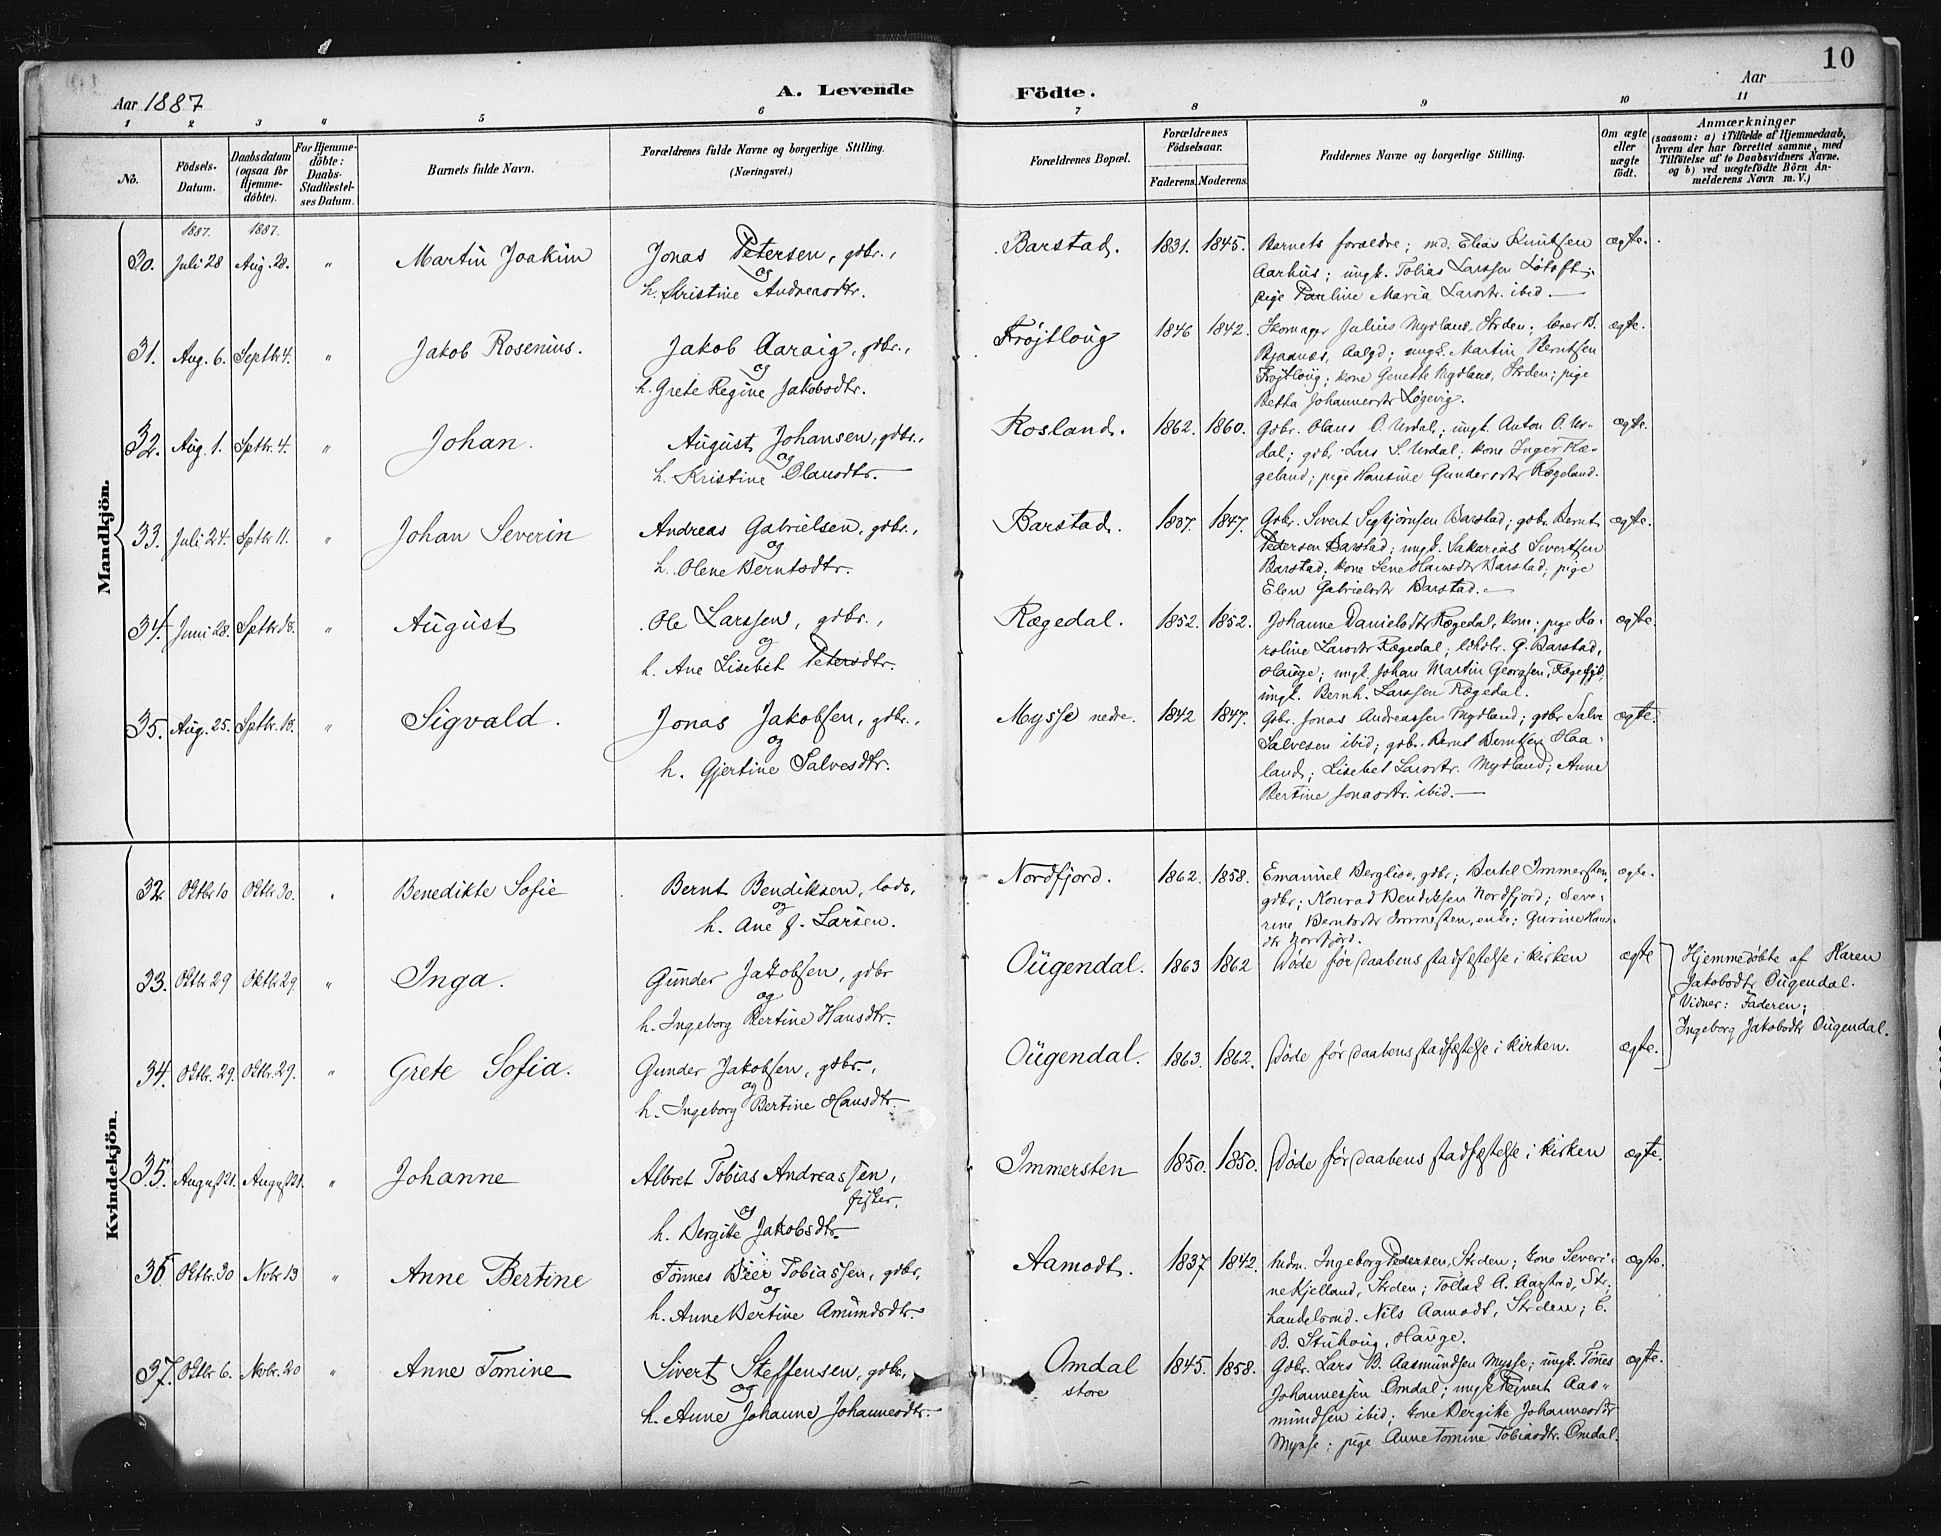 10
Aar 1887
A. Levende Födte.
Aar
1 2 3 4 5 6 7 8 9 10 11
No.
Födsels-Datum.
Daabsdatum (ogsaa for Hjemme-döbte).
For Hjemme-döbte: Daabs-Stadfæstel-ses Datum.
Barnets fulde Navn.
Forældrenes fulde Navne og borgerlige Stilling. (Næringsvei.)
Forældrenes Bopæl.
Forældrenes Födselsaar.
Faderens. Moderens.
Faddernes Navne og borgerlige Stilling.
Om ægte eller uægte født.
Anmærkninger
(saasom: a) i Tilfælde af Hjemmedaab, hvem der har forrettet samme, med Tilföielse af to Daabsvidners Navne, og b) ved uægtefödte Börn An-melderens Navn m. V.)
Mandkjön.
1887. 1887.
30. Juli 28 Aug. 28. " Martin Joakim Jonas Petersen, gdbr., Barstad. 1831. 1845. Barnets forældre; md. Elias Knutsen ægte.
og Aarhus; ungk. Tobias Larssen Løtoft;
h. Kristine Andreasdtr. pige Pauline Maria Larsdtr. ibid.
31. Aug. 6. Septbr 4. " Jakob Rosenius. Jakob Aaraig, gdbr., Frøjtloug 1846 1842. Skomager Julius Mydland, Strden; lærer B. ægte.
og Bjaanes, Aalgd; ungk. Martin Berntsen
h. Grete Regine Jakobsdtr. Frøjtloug; kone Genette Mydland, Strden; pige
Betha Johannesdtr Løgevig.
32. Aug. 1. Septbr. 4. " Johan. August Johansen, gdbr., Rosland. 1862. 1860. Gdbr. Olaus O. Urdal; ungk. Anton O. Ur- ægte.
og dal; gdbr. Lars S. Urdal; kone Inger Ræ-
h. Kristine Olausdtr. geland; pige Hansine Gundersdtr Rægeland.
33. Juli 24. Sptbr 11. " Johan Severin Andreas Gabrielsen, gdbr., Barstad. 1847. Gdbr. Sivert Sigbjørnsen Barstad; gdbr. Bernt ægte.
og Pedersen Barstad; ungk. Sakarias Sivertsen
h. Olene Berntsdtr. Barstad; kone Lene Hansdtr Barstad; pige
Elen Gabrielsdtr Barstad.
34. Juni 28. Septbr 18. " August Ole Larssen, gdbr., Rægedal. 1852. 1852. Johanne Danielsdtr Rægedal, kone; pige Ka- ægte.
og roline Larsdtr Rægedal; G. Barstad,
h. Ane Lisebet Petersdtr. Hauge; ungk. Johan Martin Georgsen,
ungk. Bernh. Larssen Rægedal.
35. Aug. 25. Septbr. 18. " Sigvald. Jonas Jakobsen, gdbr., Mysse nedre. 1842 1847. Gdbr. Jonas Andreassen Mydland; gdbr Salve ægte.
og Salvesen ibid; gdbr. Bernt Berntsen Haa-
h. Gjertine Salvesdtr. land; Lisebet Larsdtr. Mydland; Anne
Bertine Jonasdtr. ibid.
Kvindekjön.
32. Oktbr 10 Oktbr 30. " Benedikte Sofie Bernt Bendiksen, lods, Nordfjord. 1862. 1858. Emanuel Bergliod, gdbr; Bertel Immersten, ægte.
og gdbr; Konrad Bendiksen Nordfjord; Seve-
h. Ane J. Larsen. rine Berntsdtr Immersten, enke; Gurine Hans-
dtr Nordfjord.
33. Oktbr 29 Oktbr 29. " Inga. Gunder Jakobsen, gdbr Ougendal. 1863 1862 Døde før daabens stadfæstelse i kirken ægte Hjemmedøbte af Karen
og Jakobsdtr Ougendal.
h. Ingeborg Bertine Hansdtr. Vidner: Faderen;
Ingeborg Jakobsdtr Ougendal.
34. Oktbr. 29. Oktbr. 29. " Grete Sofia. Gunder Jakobsen, gdbr., Ougendal. 1863. 1862. Døde før daabens stadfæstelse i kirken. ægte.
og
h. Ingeborg Bertine Hansdtr.
35. August 21. August 21. " Johanne Albret Tobias Andreassen, Immersten 1850. 1850. Døde før daabens stadfæstelse i kirken ægte.
fisker.
og
h. Bergitte Jakobsdtr.
36. Oktbr. 30 Nvbr. 13 " Anne Bertine Tønnes Beer Tobiassen, gdbr, Aamodt. 1837 1842. hudm. Ingeborg Pedersen, Strden; kone Severi- ægte.
og ne Kjelland, Strden; Tollak A. Aarstad, Str;
h. Anne Bertine Amundsdtr. handelsmd. Nils Aamodt, Strden; E.
B. Stuhoug, Hauge.
37. Oktbr 6. Novbr. 20 " Anne Tomine Sivert Steffensen, gdbr, Omdal 1845. 1858. Gdbr. Lars B. Aasmundsen Mysse; ungk. Tønes ægte.
og store Johannessen Omdal; ungk Rejnert Aas-
h. Anne Johanne Johannesdtr. mundsen ibid; kone Bergitte Johannesdtr
Mysse; pige Anne Tomine Tobiasdtr. Omdal.